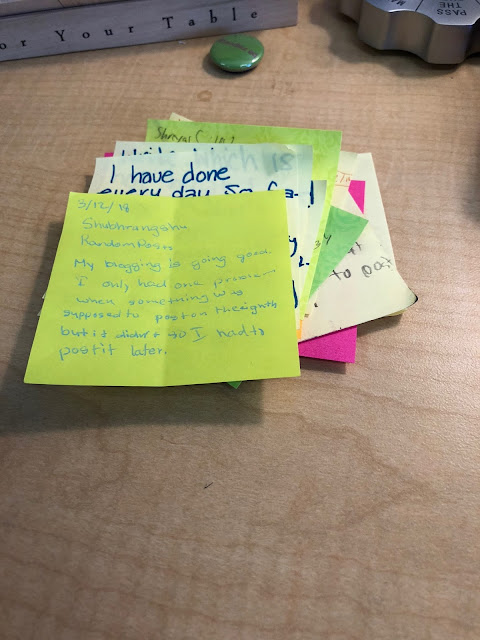 or Your Table
PASS
THE
I have done
every day so far!
3/12/18
Shubhrangshu
RandomPosts
My blogging is going good.
I only had one problem
when something was
supposed to post on the eighth
but it didn't so I had to
post it later.
to post